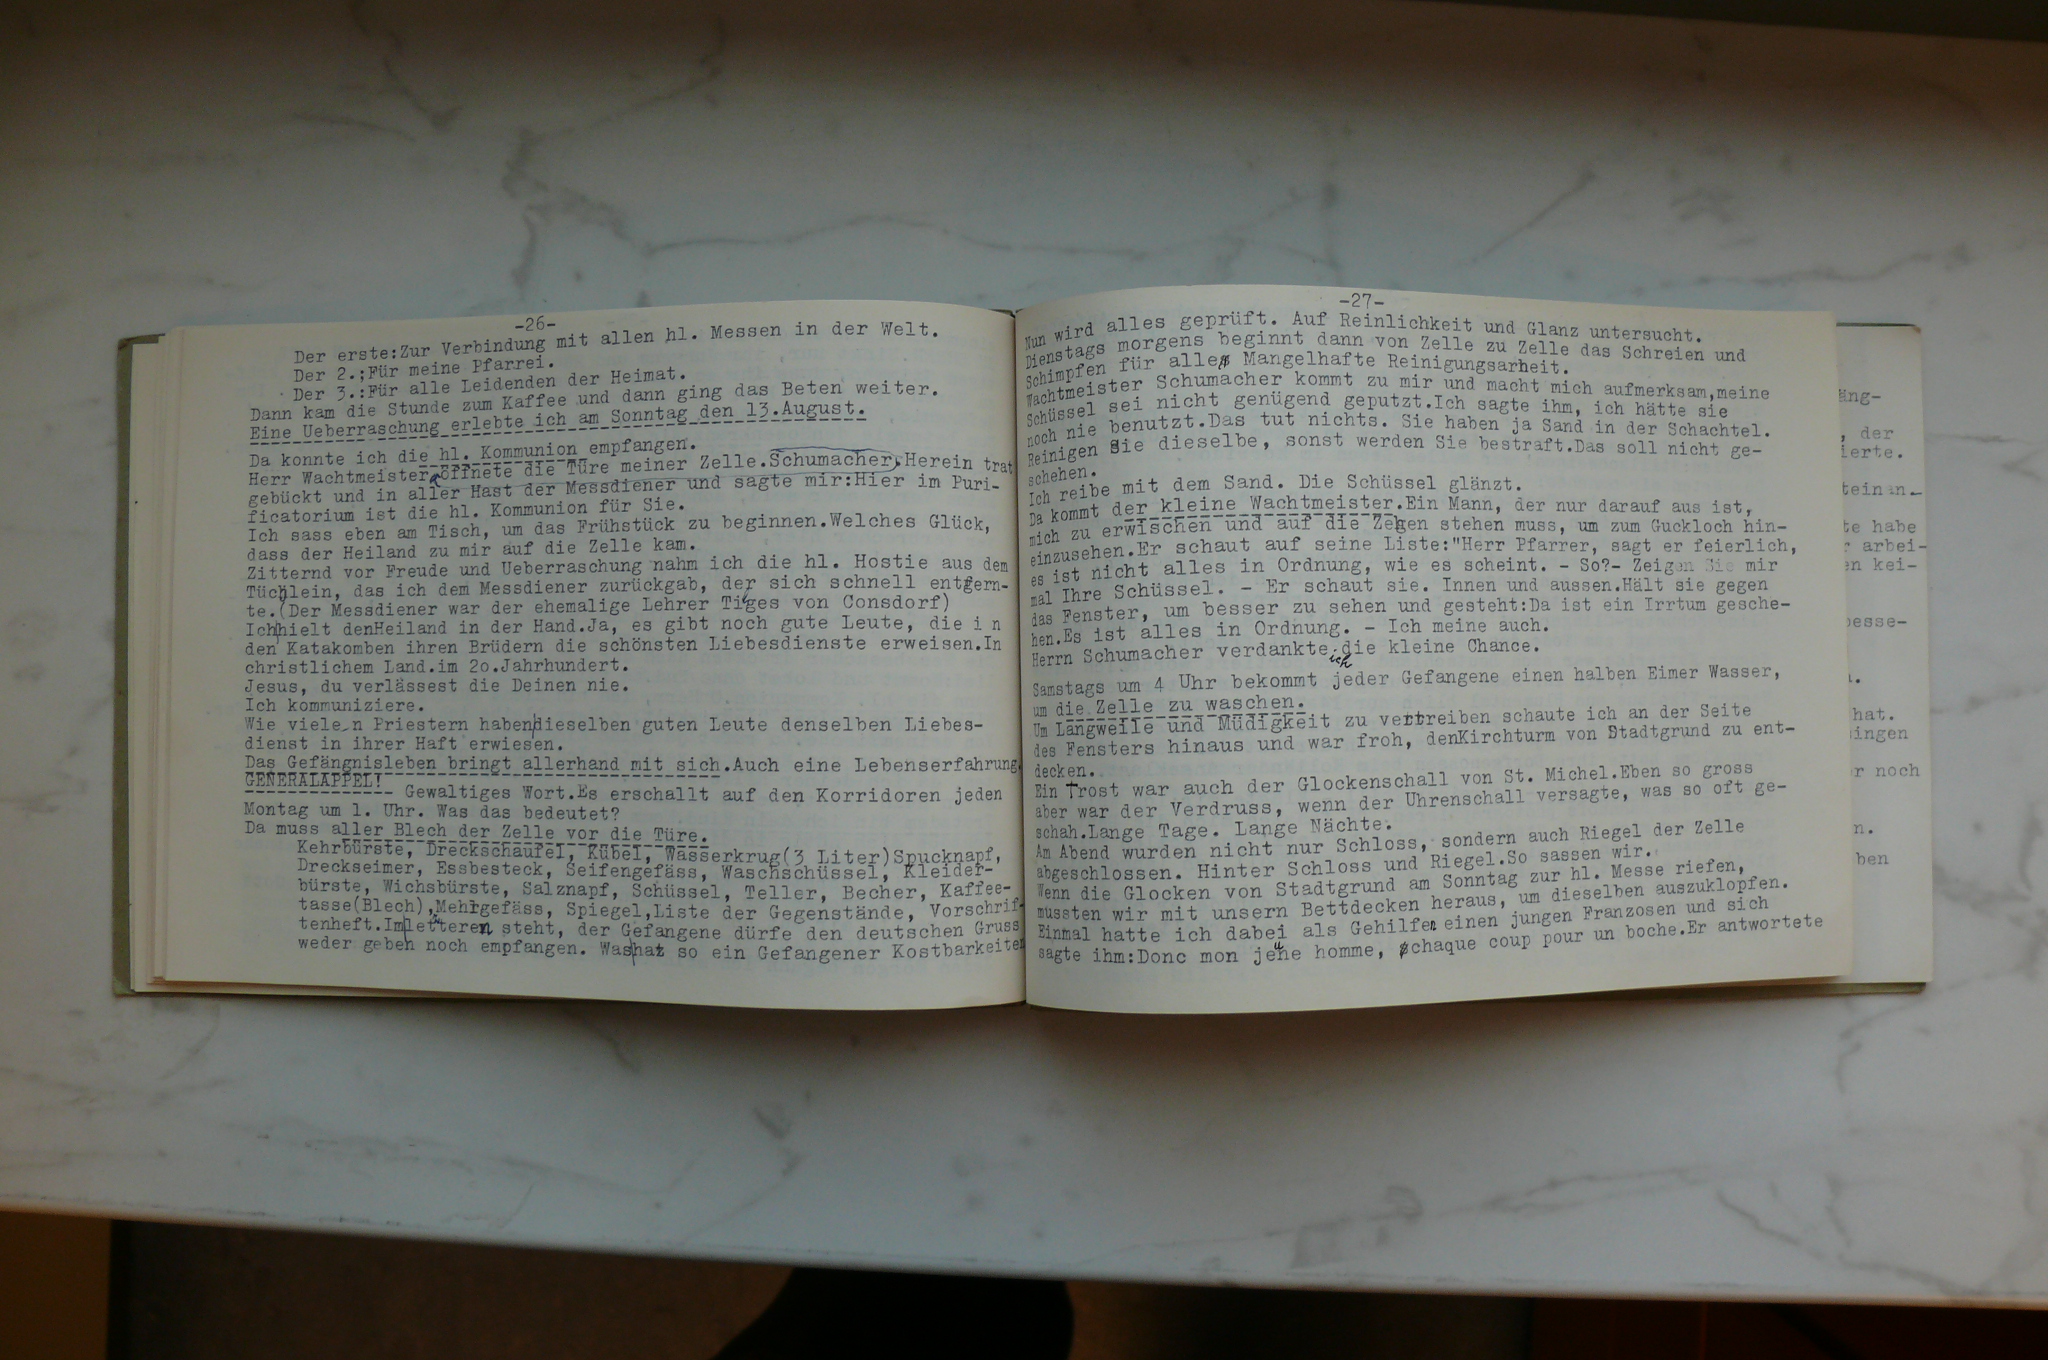 -26-
Der erste:Zur Verbindung mit allen hl. Messen in der Welt.
Der 2.:Für meine Pfarrei.
Der 3.:Für alle Leidenden der Heimat.
Dann kam die Stunde zum Kaffee und dann ging das Beten weiter.
Eine Ueberraschung erlebte ich am Sonntag den 13.August.
Da konnte ich die hl. Kommunion empfangen.
Herr Wachtmeister öffnete die Türe meiner Zelle.Schumacher,Herein trat
gebückt und in aller Hast der Messdiener und sagte mir:Hier im Puri-
ficatorium ist die hl. Kommunion für Sie.
Ich sass eben am Tisch, um das Frühstück zu beginnen.Welches Glück,
dass der Heiland zu mir auf die Zelle kam.
Zitternd vor Freude und Ueberraschung nahm ich die hl. Hostie aus dem
Tüchlein, das ich dem Messdiener zurückgab, der sich schnell entfern-
te.(Der Messdiener war der ehemalige Lehrer Tiges von Consdorf)
Ich hielt denHeiland in der Hand.Ja, es gibt noch gute Leute, die i n
den Katakomben ihren Brüdern die schönsten Liebesdienste erweisen.In
christlichem Land.im 2o.Jahrhundert.
Jesus, du verlässest die Deinen nie.
Ich kommuniziere.
Wie viele n Priestern haben dieselben guten Leute denselben Liebes-
dienst in ihrer Haft erwiesen.
Das Gefängnisleben bringt allerhand mit sich.Auch eine Lebenserfahrung.
GENERALAPPEL! Gewaltiges Wort.Es erschallt auf den Korridoren jeden
Montag um 1. Uhr. Was das bedeutet?
Da muss aller Blech der Zelle vor die Türe.
Kehrbürste, Dreckschaufel, Kübel, Wasserkrug(3 Liter)Spucknapf,
Dreckseimer, Essbesteck, Seifengefäss, Waschschüssel, Kleider-
bürste, Wichsbürste, Salznapf, Schüssel, Teller, Becher, Kaffee-
tasse(Blech),Mehrgefäss, Spiegel,Liste der Gegenstände, Vorschrif-
tenheft.Im letzteren steht, der Gefangene dürfe den deutschen Gruss
weder geben noch empfangen. Was hat so ein Gefangener Kostbarkeiten
-27-
Nun wird alles geprüft. Auf Reinlichkeit und Glanz untersucht.
Dienstags morgens beginnt dann von Zelle zu Zelle das Schreien und
Schimpfen für alle Mangelhafte Reinigungsarheit.
Wachtmeister Schumacher kommt zu mir und macht mich aufmerksam,meine
Schüssel sei nicht genügend geputzt.Ich sagte ihm, ich hätte sie
noch nie benutzt.Das tut nichts. Sie haben ja Sand in der Schachtel.
Reinigen Sie dieselbe, sonst werden Sie bestraft.Das soll nicht ge-
schehen.
Ich reibe mit dem Sand. Die Schüssel glänzt.
Da kommt der kleine Wachtmeister.Ein Mann, der nur darauf aus ist,
mich zu erwischen und auf die Zehen stehen muss, um zum Guckloch hin-
einzusehen.Er schaut auf seine Liste:"Herr Pfarrer, sagt er feierlich,
es ist nicht alles in Ordnung, wie es scheint. - So?- Zeigen Sie mir
mal Ihre Schüssel. - Er schaut sie. Innen und aussen.Hält sie gegen
das Fenster, um besser zu sehen und gesteht:Da ist ein Irrtum gesche-
hen.Es ist alles in Ordnung. - Ich meine auch.
Herrn Schumacher verdankte ich die kleine Chance.
Samstags um 4 Uhr bekommt jeder Gefangene einen halben Eimer Wasser,
um die Zelle zu waschen.
Um Langweile und Müdigkeit zu vertreiben schaute ich an der Seite
des Fensters hinaus und war froh, denKirchturm von Stadtgrund zu ent-
decken.
Ein Trost war auch der Glockenschall von St. Michel.Eben so gross
aber war der Verdruss, wenn der Uhrenschall versagte, was so oft ge-
schah.Lange Tage. Lange Nächte.
Am Abend wurden nicht nur Schloss, sondern auch Riegel der Zelle
abgeschlossen. Hinter Schloss und Riegel.So sassen wir.
Wenn die Glocken von Stadtgrund am Sonntag zur hl. Messe riefen,
mussten wir mit unsern Bettdecken heraus, um dieselben auszuklopfen.
Einmal hatte ich dabei als Gehilfen einen jungen Franzosen und sich
sagte ihm:Donc mon jeune homme, chaque coup pour un boche.Er antwortete
äng-
, der
ierte.
te habe
r arbei-
en kei-
besse-
hat.
ingen
r noch
n.
ben